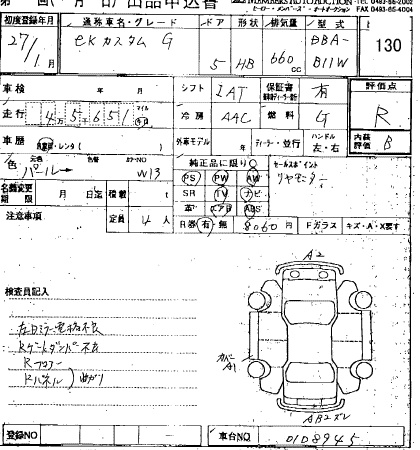 出品申込書
MEMBERS AUTO AUCTION
FAX 0493-85-4004
初度登録年月 通称車名・グレード ドア 形状 排気量 型式
27/1月 eKカスタム G 5 HB 660cc DBA-B11W 130
車検 年 月 シフト IAT 保証書 有 評価点
走行 4万5651 マイル
冷房 AAC 燃料 G R
車歴 自家用・レンタ 外車モデル 年 ディーラー・並行 ハンドル 左・右 内装評価 B
色 元色 パール 色替 カラーNO W13
純正品に限り○ セールスポイント
PS PW AW リヤモニター
名義変更期限 月 日迄 積載 t SR TV ナビ
革 エアB ABS
注意事項 定員 4人 R券 有 無 8060円 Fガラス キズ・A・X要す
検査員記入
A2
左ドミラー電格不良
Rゲートダンパー不良
Rフロアー
Rパネル)曲がり
カバーA1
AB2ズレ
登録NO 車台NO 0108945